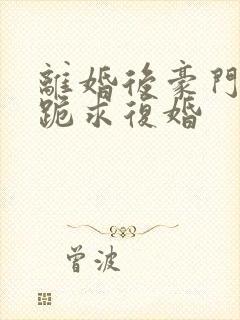 離婚後豪門
跪求復婚
曾波